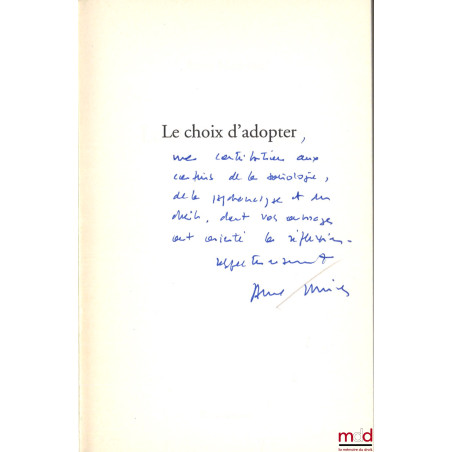 Le choix d'adopter,
une contribution aux
confins de la sociologie,
de la psychanalyse et du
droit, dont vos ouvrages
ont orienté la réflexion -
respectueusement
Anne
mdd
la mémoire du droit